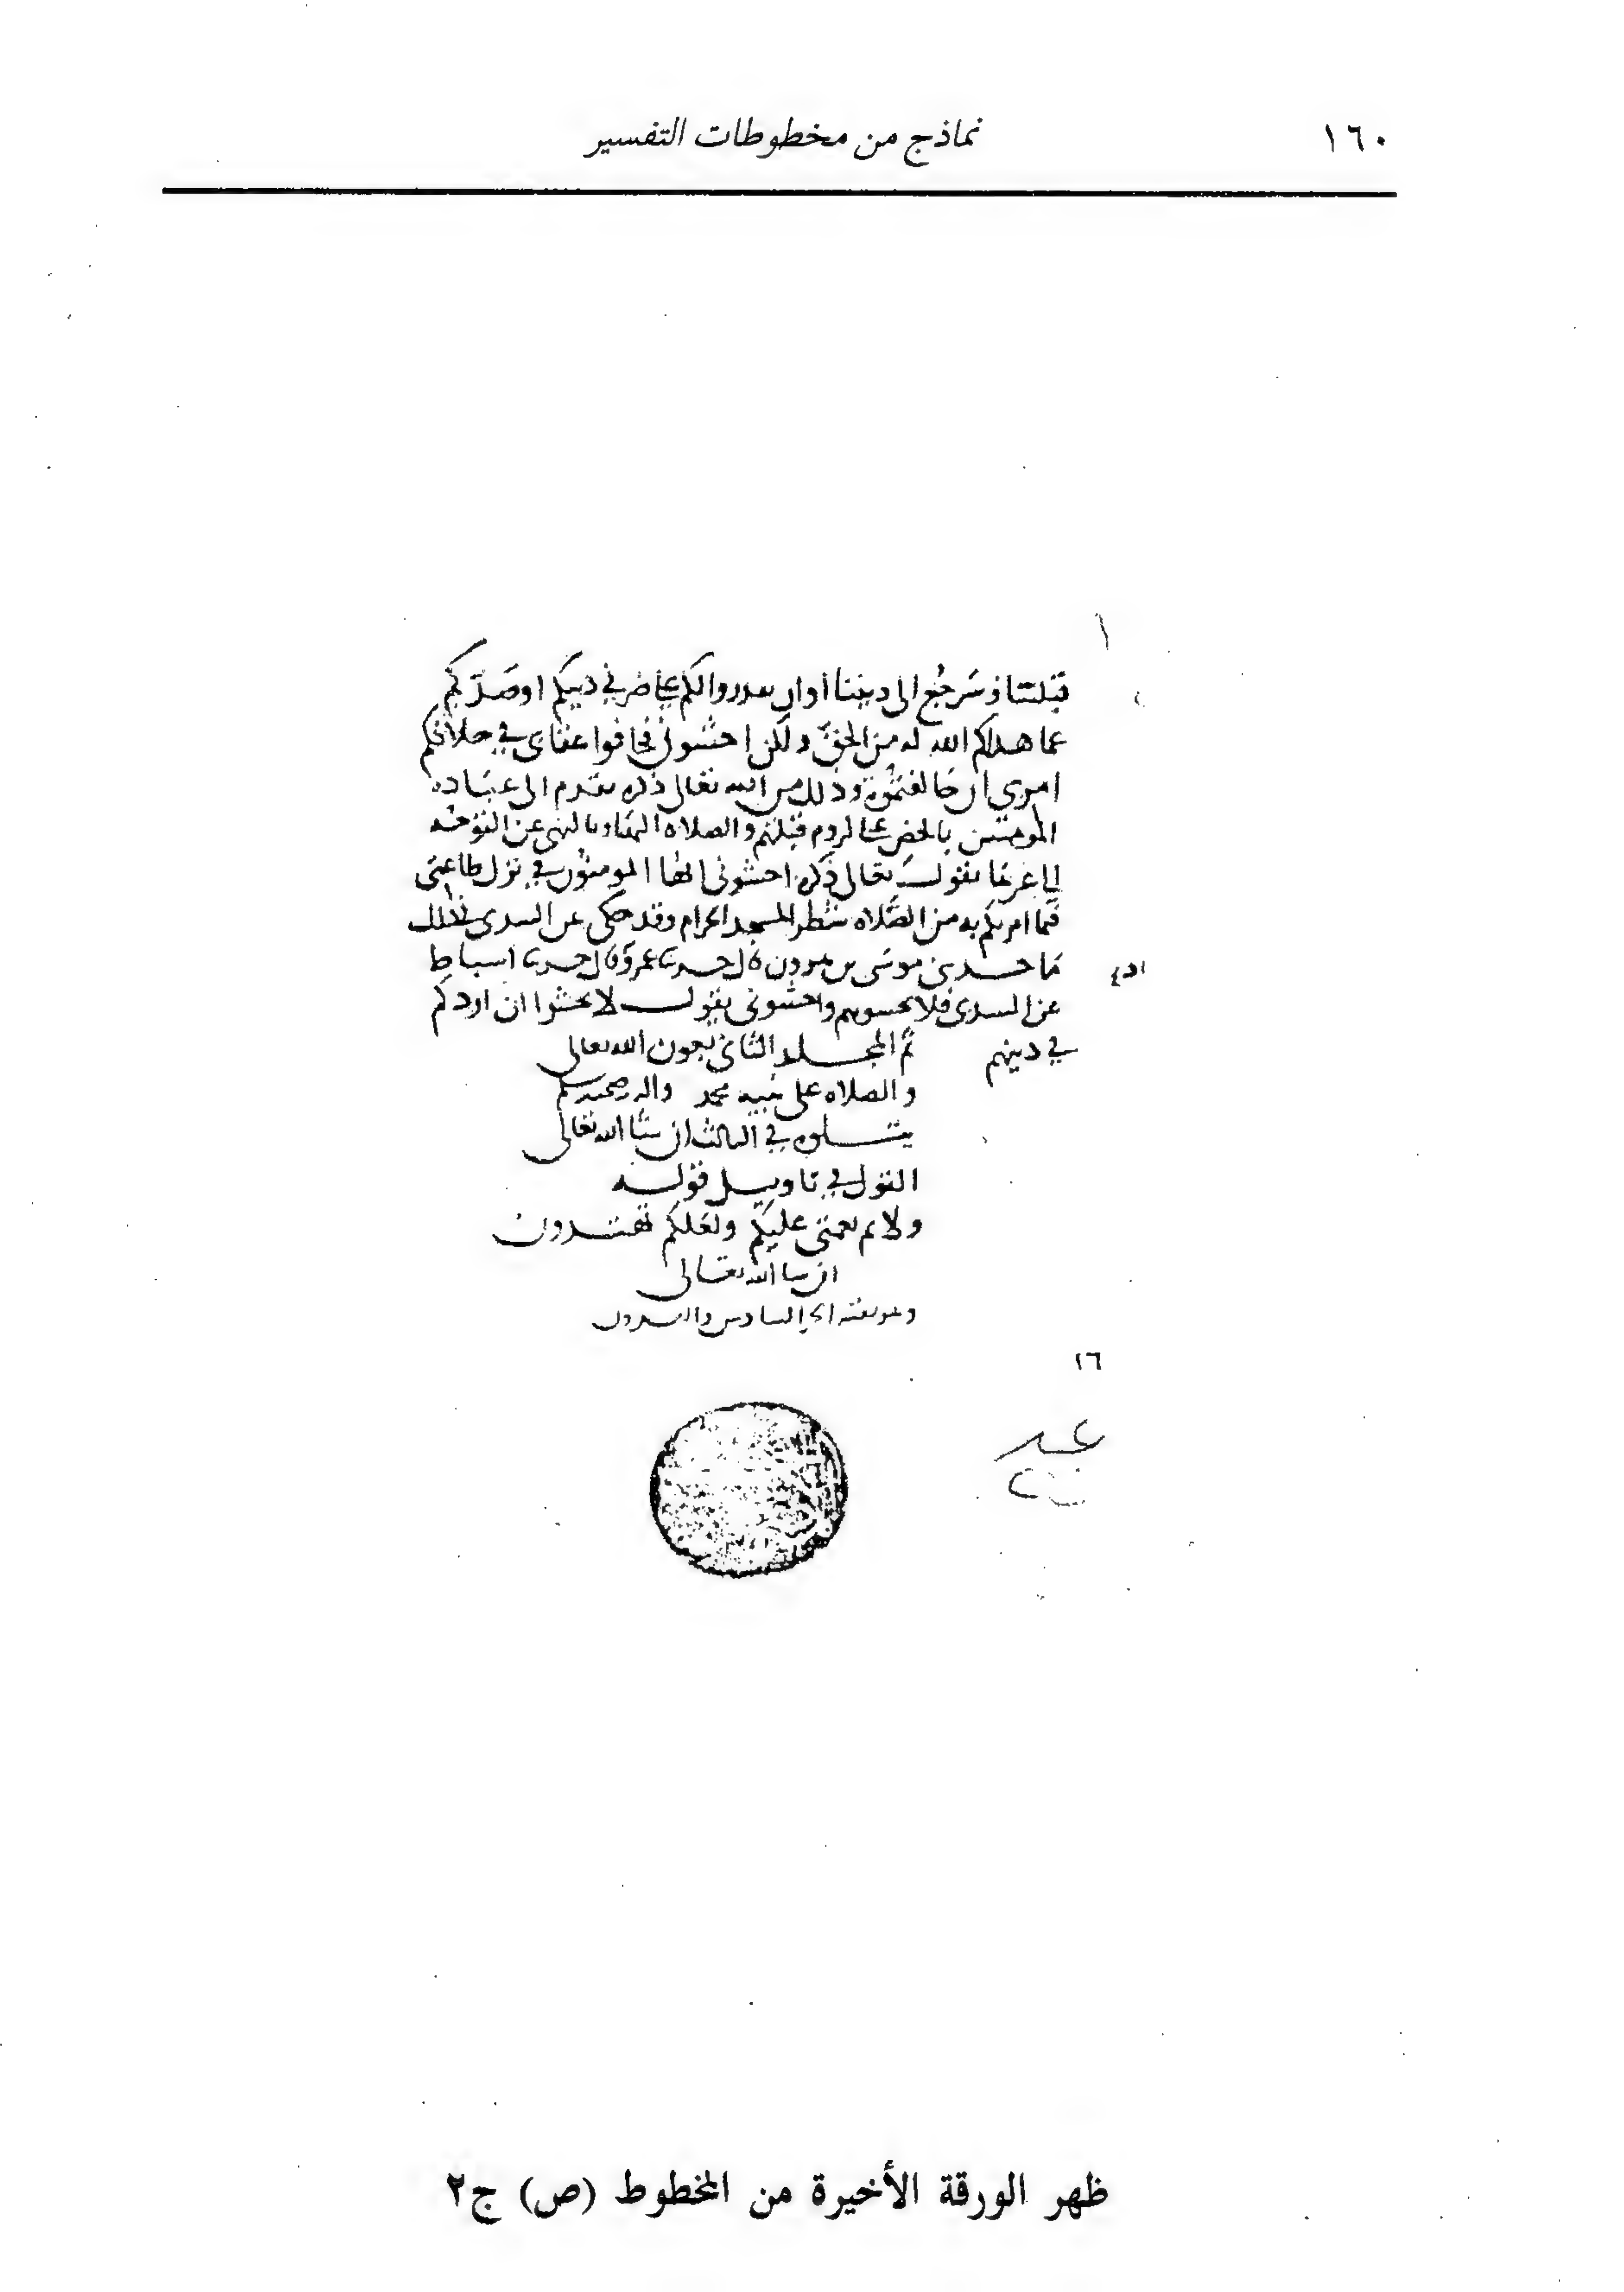 ١٦٠
نماذج من مخطوطات التفسير
قبلتنا وسَرجعُ الى ديننا أو ان يقدروا لكم على ضر في دينكم او صَدّكم
عما هداكم الله له من الحق ولكن اخشوني فخافوا عقابي في خلافكم
امري ان خالفتموه وذلك من الله تعالى ذكره تقدم الى عباده
المومنين بالحض على لزوم قبلتهم والصلاه اليها وبالنهي عن التوجه
الى غيرها يقول تعالى ذكره واخشوني ايها المومنون في ترك طاعتي
فيما امرتكم به من الصَّلاه شطر المسجد الحرام وقد حكي عن السدي في ذلك
مَا حدثني موسَى بن هرون قال حدثنا عمرو قال حدثنا اسباط
عن السدي فلا تخشوهم واخشوني يقول لا تخشوا ان اردكم
في دينهم
تم المجلد الثاني بعون الله تعالى
والصلاه على نبيه محمد واله وصحبه وسلم
يتلوه في الثالث ان شا الله تعالى
القول في تاويل قوله
ولاتم نعمتي عليكم ولعلكم تهتدون
ان شا الله تعالى
١٦
ظهر الورقة الأخيرة من المخطوط (ص) ج٢